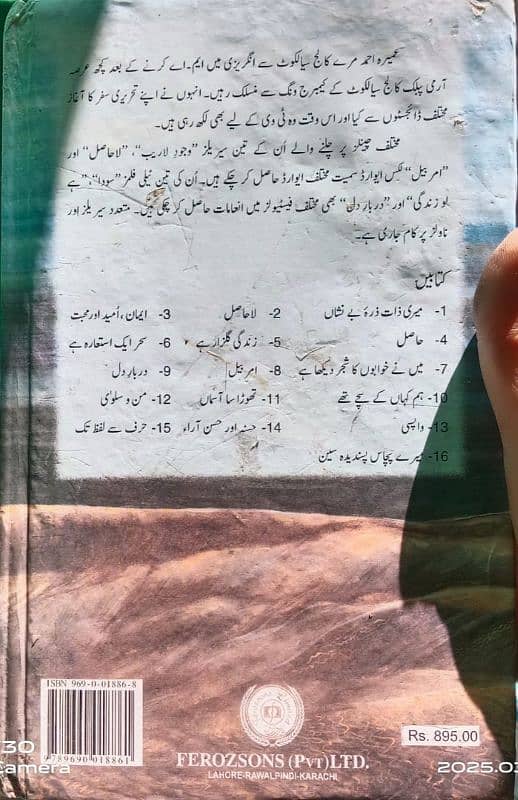 عمیرہ احمد مرے کالج سیالکوٹ سے انگریزی میں ایم۔اے کرنے کے بعد کچھ عرصہ
آرمی پبلک کالج سیالکوٹ کے کیمبرج ونگ سے منسلک رہیں۔ انہوں نے اپنے تحریری سفر کا آغاز
مختلف ڈائجسٹوں سے کیا اور اس وقت وہ ٹی وی کے لیے بھی لکھ رہی ہیں۔
مختلف چینلز پر چلنے والے اُن کے تین سیریلز ”وجودِ لاریب“، ”لاحاصل“ اور
”امربیل“ لکس ایوارڈ سمیت مختلف ایوارڈ حاصل کر چکے ہیں۔ اُن کی تین ٹیلی فلمز ”سودا“، ”ہے
لو زندگی“ اور ”دربارِ دل“ بھی مختلف فیسٹیولز میں انعامات حاصل کر چکی ہیں۔ متعدد سیریلز اور
ناولز پر کام جاری ہے۔
کتابیں
1- میری ذات ذرۂ بے نشاں 2- لاحاصل 3- ایمان، اُمید اور محبت
4- حاصل 5- زندگی گلزار ہے 6- سحر ایک استعارہ ہے
7- میں نے خوابوں کا شجر دیکھا ہے 8- امربیل 9- دربارِ دل
10- ہم کہاں کے سچے تھے 11- تھوڑا سا آسماں 12- من و سلویٰ
13- واپسی 14- حسنہ اور حسن آراء 15- حرف سے لفظ تک
16- میرے پچاس پسندیدہ سین
ISBN 969-0-01886-8
9789690018861
FEROZSONS (PVT) LTD.
LAHORE-RAWALPINDI-KARACHI
Rs. 895.00
30
Camera
2025.03